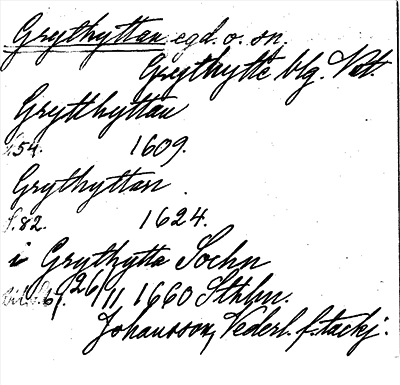 Grythyttan egd. o. sn
Grythytte blg. Vst.
Grytthyttan
f.54. 1609.
Grythyttan
f.82. 1624.
i Grythytta Sochn
bil. s. 67. 26/11 1660 Sthlm.
Johansson, Nederl. f. tackj.